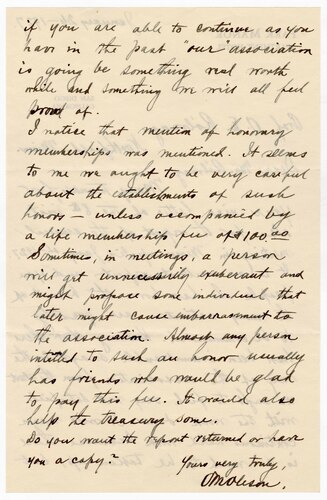 if you are able to continue as you
have in the past "our" association
is going be something real worth
while and something we will all feel
proud of.
I notice that mention of honorary
memberships was mentioned. It seems
to me we ought to be very careful
about the establishments of such
honors - unless accompanied by
a life membership fee of $100.00
Sometimes, in meetings, a person
will get unnecessarily exuberant and
might propose some individual that
later might cause embarrassment to
the association. Almost any person
intitled to such an honor usually
has friends who would be glad
to pay this fee. It would also
help the treasury some.
Do you want the report returned or have
you a copy?
Yours very truly,